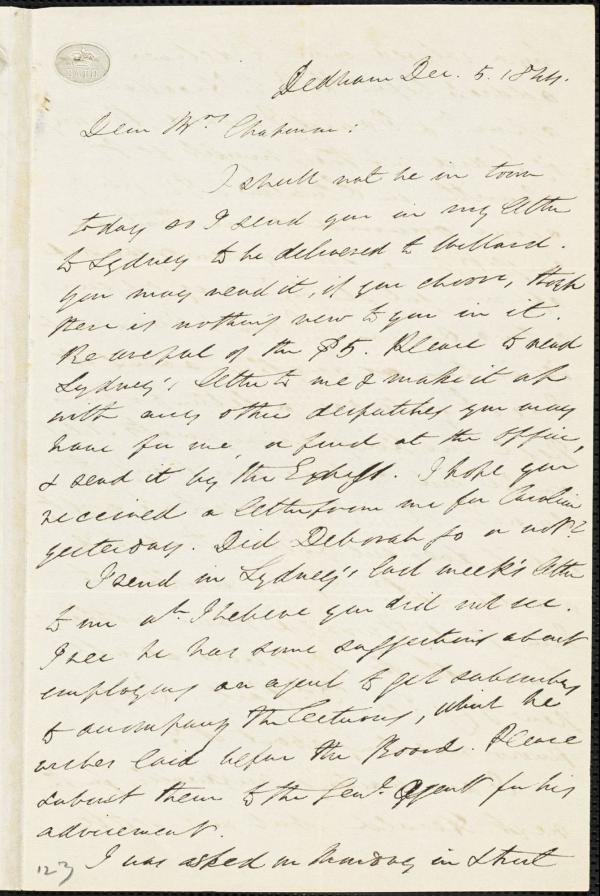 BATH
Dedham Dec. 5. 1844.
Dear Mrs Chapman:
I shall not be in town
today so I send you in my letter
to Sydney to be delivered to Willard.
You may read it, if you choose, though
there is nothing new to you in it.
Be careful of the $5. Please to read
Sydney's letter to me & make it up
with any other despatches you may
have for me, or find at the office,
& send it by the Express. I hope you
received a letter from me for Caroline
yesterday. Did Deborah go or not?
I send in Sydney's last week's letter
to me wh. I believe you did not see.
I see he has some suggestions about
employing an agent to get subscribers
to accompany the lectures, which he
wishes laid before the Board. Please
submit them to the Genl. Agent for his
advisement.
I was asked on Monday in Street
123